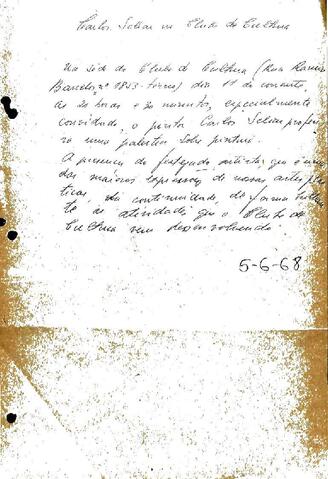 Carlos Scliar no Clube de Cultura
Na sede do Clube de Cultura (Rua Ramiro
Barcelos, nº 1853 - térreo) dia 11 do corrente,
às 20 horas e 30 minutos, especialmente
convidado, o pintor Carlos Scliar profere-
rá uma palestra sobre pintura.
A presença do festejado artista que é uma
das maiores expressões de nossas artes plás-
ticas, dá continuidade, de forma
te às atividades que o Clube de
Cultura vem desenvolvendo.
5-6-68